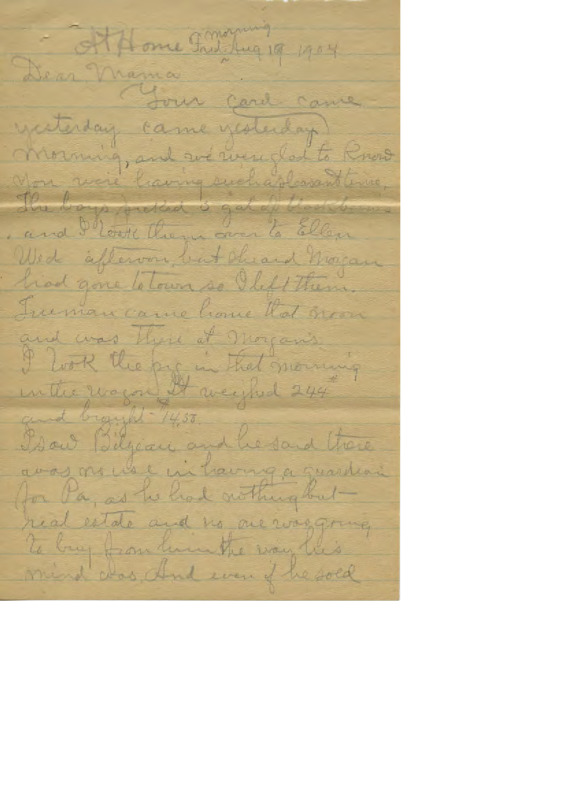 morning
At Home Frid. Aug 19 1904
Dear Mama
Your card came
yesterday came yesterday
morning, and we were glad to know
you were having such a pleasant time.
The boys picked 3 gal of blackberries
and I took them over to Ellen
Wed afternoon, but Ellen and Morgan
had gone to town so I left them.
Freeman came home that noon
and was there at Morgan's
I took the pig in that morning
in the wagon. It weighed 244#
and brought
I saw and he said there
was no use in having a guardian
for Pa, as he had nothing but
real estate and no one was going
to buy from him the way his
mind was. And even if he sold